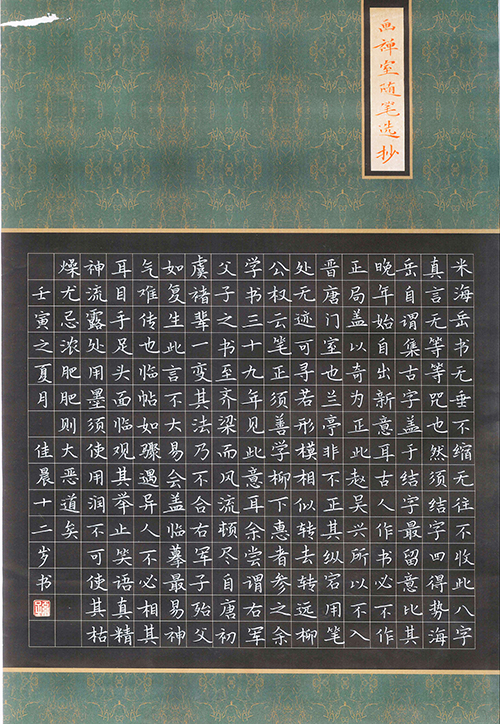 画禅室随笔选抄
米海岳书无垂不缩无往不收此八字
真言无等等咒也然须结字四得势海
岳自谓集古字盖于结字最留意比其
晚年始自出新意耳古人作书必不作
正局盖以奇为正此赵吴兴所以不入
晋唐门室也兰亭非不正其纵宕用笔
处无迹可寻若形模相似转去转远柳
公权云笔正须善学柳下惠者参之余
学书三十九年见此意耳余尝谓右军
父子之书至齐梁而风流顿尽自唐初
虞褚辈一变其法乃不合右军子殆父
如复生此言不大易会盖临摹最易神
气难传也临帖如骤遇异人不必相其
耳目手足头面临观其举止笑语真精
神流露处用墨须使用润不可使其枯
燥尤忌浓肥肥则大恶道矣
壬寅之夏月 佳晨十二岁书